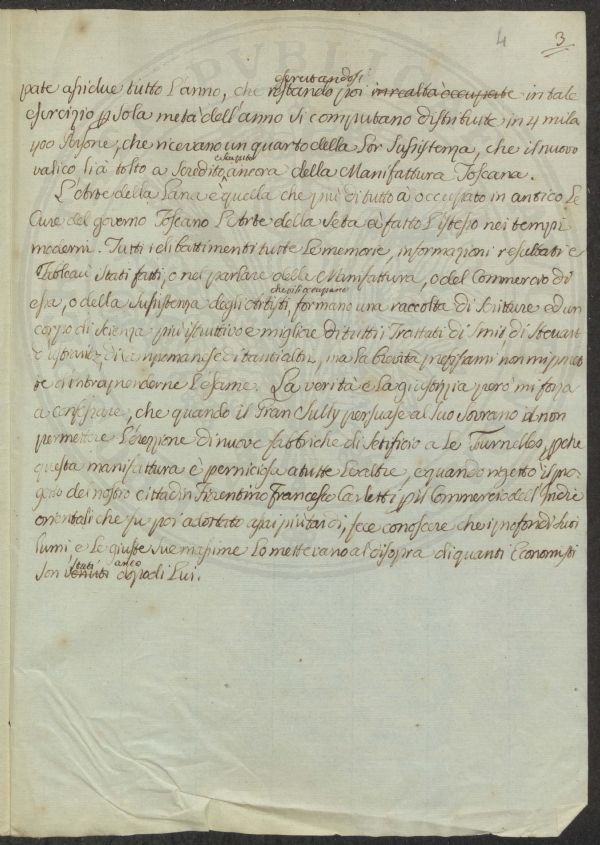 4 3
esercitandosi
pate assidue tutto l'anno, che restando poi in realtà occupate in tale
esercizio p sola metà dell'anno si computano distribuite in 4 mila
400 Persone, che ricevano un quarto della Lor Sussistenza, che il nuovo
valico li à tolto a Scredito ancora della Manifattura Toscana.
L'Arte della Lana è quella che più di tutto à occupato in antico Le
Cure del governo Toscano L'Arte della Seta à fatto L'istesso nei tempi
moderni. Tutti i dibattimenti tutte Le memorie, informazioni resultati e
Tableau Stati fatti, o nel parlare della Manifattura, o del Commercio di
che vi si occupano
essa, o della Sussistenza degli Artisti, formano una raccolta di Scritture ed un
corpo di Scienza più istruttivo e migliore di tutti i Trattati di Smit di Stevart
e di tanti altri, ma la brevità prefissami non mi permet
te d'intraprenderne L'esame. La verità e La giustizia però mi forza
a confessare, che quando il Gran Sully persuase al Suo Sovrano il non
permettere L'erezione di nuove fabbriche di Setificio a Le Tournelles, pche
questa manifattura è perniciosa a tutte Le altre, e quando rigettò il pro-
getto del nostro cittadin Fiorentino Francesco Carletti p il Commercio dell'Indie
orientali che fu poi adottato assai più tardi, fece conoscere che i profondi Suoi
lumi e Le giuste Sue massime Lo mettevano al disopra di quanti Economisti
stati anco
Son venuti dopo di Lui.